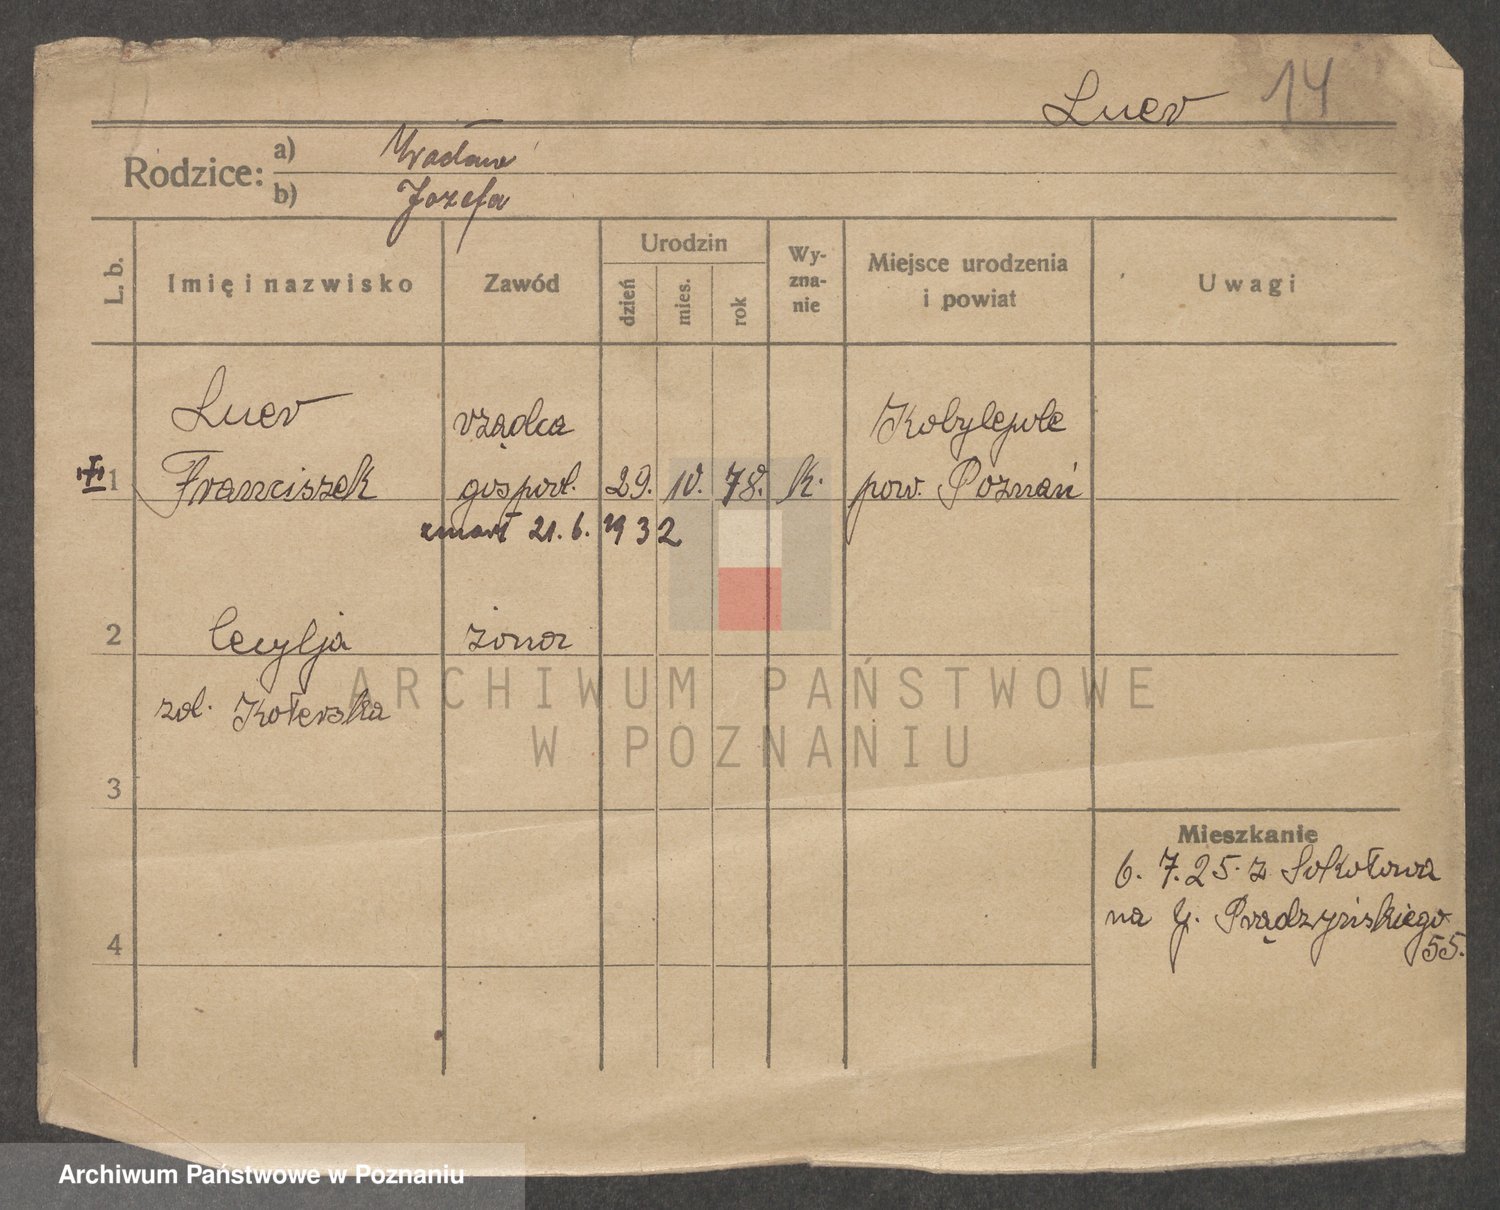 Luer 14
Rodzice: a) Wacław
b) Józefa
L. b.
Imię i nazwisko
Zawód
Urodzin
dzień
mies.
rok
Wy-
zna-
nie
Miejsce urodzenia
i powiat
Uwagi
Luer rządca Kobylepole
1 Franciszek gospod. 29. 10. 78. k. pow. Poznań
zmarł 21. 6. 1932
2 Cecylja żona
zd. Koterska
3
Mieszkanie
6. 7. 25. z Sokołowa
na G. Prądzyńskiego
55.
4
ARCHIWUM PAŃSTWOWE
W POZNANIU
Archiwum Państwowe w Poznaniu